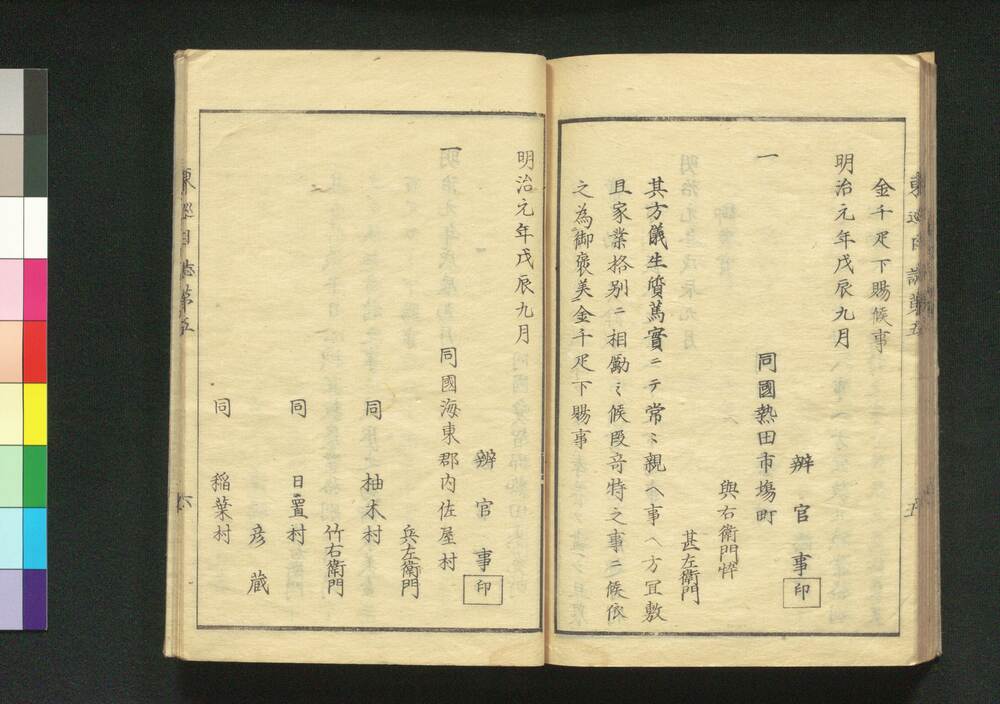 金千疋下賜候事
明治元年戊辰九月
辨官事 印
一
同國熱田市塲町
與右衛門悴
甚左衛門
其方儀生質篤實ニテ常〻親ヘ事ヘ方宜敷
且家業格別ニ相勵ミ候段竒特之事ニ候依
之為御褒美金千疋下賜事
明治元年戊辰九月
辨官事 印
一
同國海東郡内佐屋村
兵左衛門
同 柚木村
竹右衛門
同 日置村
彦藏
同 稲葉村
東巡日誌第五
六